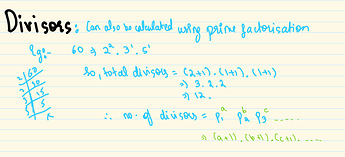 Divisors: Can also be calculated using prime factorisation
Eg:- 60 ⇒ 2². 3¹. 5¹
2|60
2|30
3|15
5|5
So, total divisors = (2+1).(1+1).(1+1)
⇒ 3.2.2
⇒ 12.
∴ no. of divisors = p₁ᵃ p₂ᵇ p₃ᶜ .....
⇒ (a+1).(b+1).(c+1).....